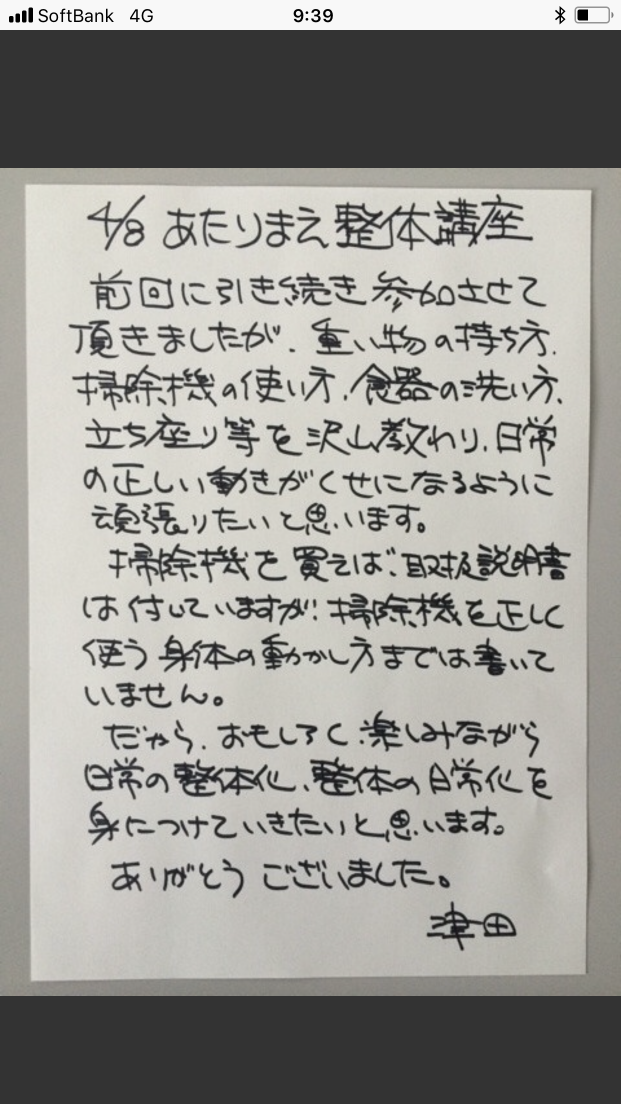 SoftBank 4G 9:39
4/8 あたりまえ整体講座
前回に引き続き参加させて
頂きましたが、重い物の持ち方、
掃除機の使い方、食器の洗い方、
立ち座り等を沢山教わり、日常
の正しい動きがくせになるように
頑張りたいと思います。
掃除機を買えば、取扱説明書
は付していますが、掃除機を正しく
使う身体の動かし方までは書いて
いません。
だから、おもしろく、楽しみながら
日常の整体化、整体の日常化を
身につけていきたいと思います。
ありがとうございました。
津田